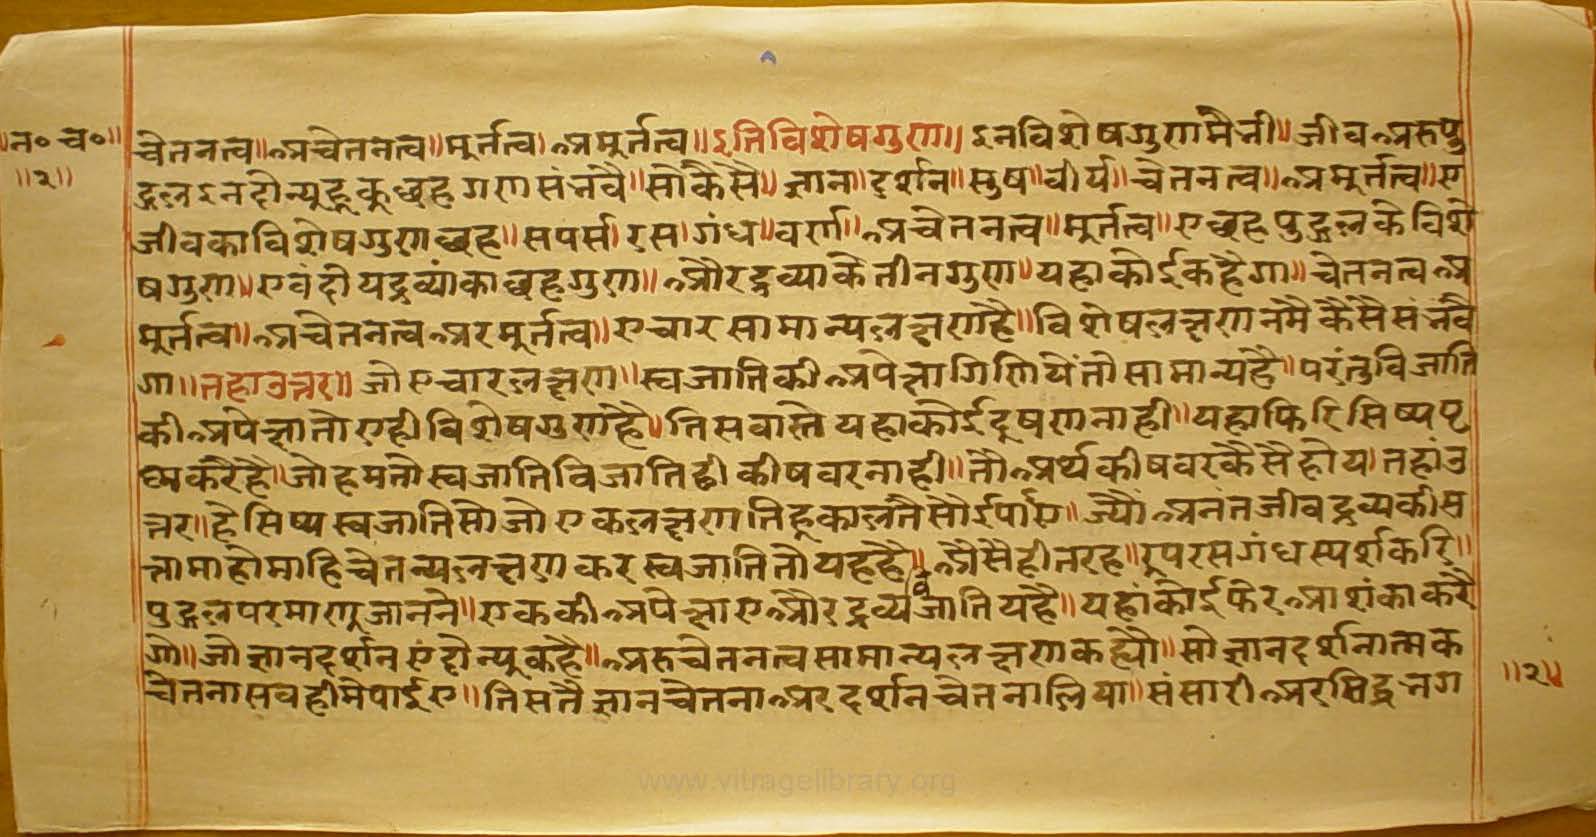 न॰ च॰॥
॥२॥
चेतनत्व॥अचेतनत्व॥मूर्तत्व।अमूर्तत्व॥इतिविशेषगुण॥इनविशेषगुणमैनी॥जीवअरुपु
द्गलइनदोन्यूहूकूछहगुणसंभवै॥सोकैसै॥ज्ञान॥दर्शन॥सुष॥वीर्य॥चेतनत्व॥अमूर्तत्व॥ए
जीवकाविशेषगुणछह॥सपर्स।रस।गंध॥वर्ण॥अचेतनत्व॥मूर्तत्व॥एछहपुद्गलकेविशे
षगुण॥एवंदोयद्रव्यांकाछहगुण॥औरद्रव्याकेतीनगुण॥यहाकोईकहैगा॥चेतनत्वअ
मूर्तत्व॥अचेतनत्वअरमूर्तत्व॥एचारसामान्यलक्षणहै॥विशेषलक्षणनमैकैसैसंभवै
गा॥तहाउत्तर॥जोएचारलक्षण॥स्वजातिकीअपेक्षागिणियेंतोसामान्यहै॥परंतुविजाति
कीअपेक्षातोएहीविशेषगुणहै॥तिसवास्तेयहाकोईदूषणनाही॥यहाफिरिसिष्यपृ
छाकरैहै॥जोहमतोस्वजातिविजातिहीकीषवरनाही॥तौअर्थकीषवरकैसैहोय।तहांउ
त्तर॥हैसिष्यस्वजातिसोजोएकलक्षणतिहूकालतैसोईपाए॥ज्यौंअनंतजीवद्रव्यकीस
त्तामाहोमाहिचेतन्यलक्षणकरस्वजातितोयहहै॥असैहीतरह॥रुपरसगंधस्पर्शकरि॥
पुद्गलपरमाणूजानने॥एककीअपेक्षाएऔरद्रव्यविजातियहै॥यहांकोईफेरआशंकाकरै
गो॥जोज्ञानदर्शनएंदोन्यूकहै॥अरुचेतनत्वसामान्यलक्षणकह्यौ॥सोज्ञानदर्शनात्मक
चेतनासवहीमेपाईए॥तिसतैज्ञानचेतनाअरदर्शनचेतनालिया॥संसारीअरसिद्धनग
॥२॥
www.vitragelibrary.org